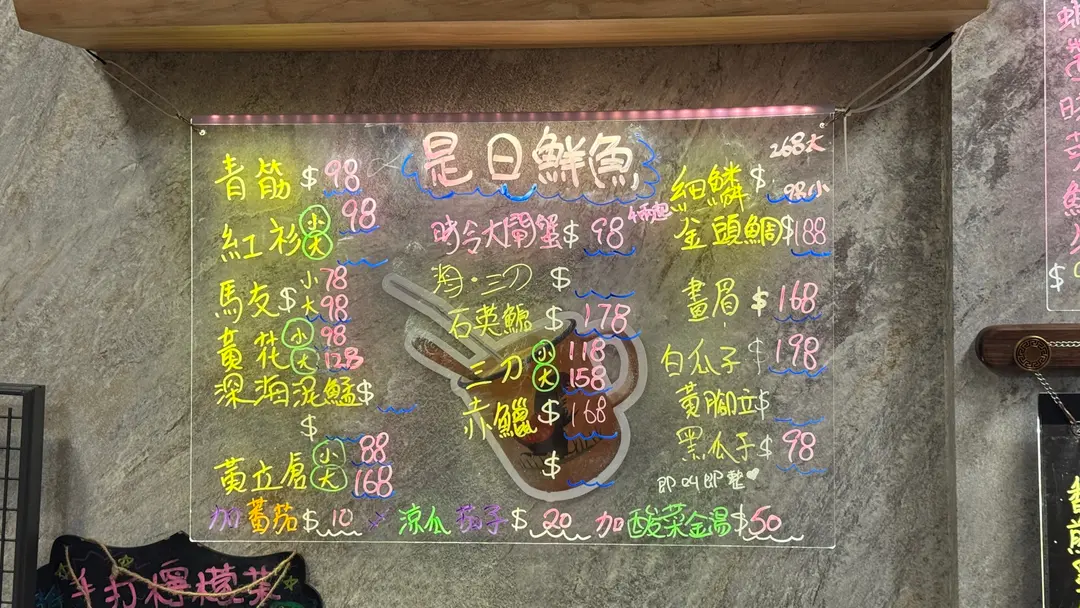 是日鮮魚
青筋 $98
紅衫 小 大 98
馬友 $ 小78 大98
黃花 小 98 大 128
深海泥鯭 $
$
黃立倉 小 88 大 168
時令大閘蟹 $98 4兩起
海·三刀 $
石英鱸 $178
三刀 小 118 大 158
赤鱲 $168
$
細鱗 $ 268大 98小
金頭鯛 $188
畫眉 $168
白瓜子 $198
黃腳立 $
黑瓜子 $98
即叫即整♡
加蕃茄 $10 / 涼瓜 茄子 $20 加酸菜金湯 $50
手打檸檬茶